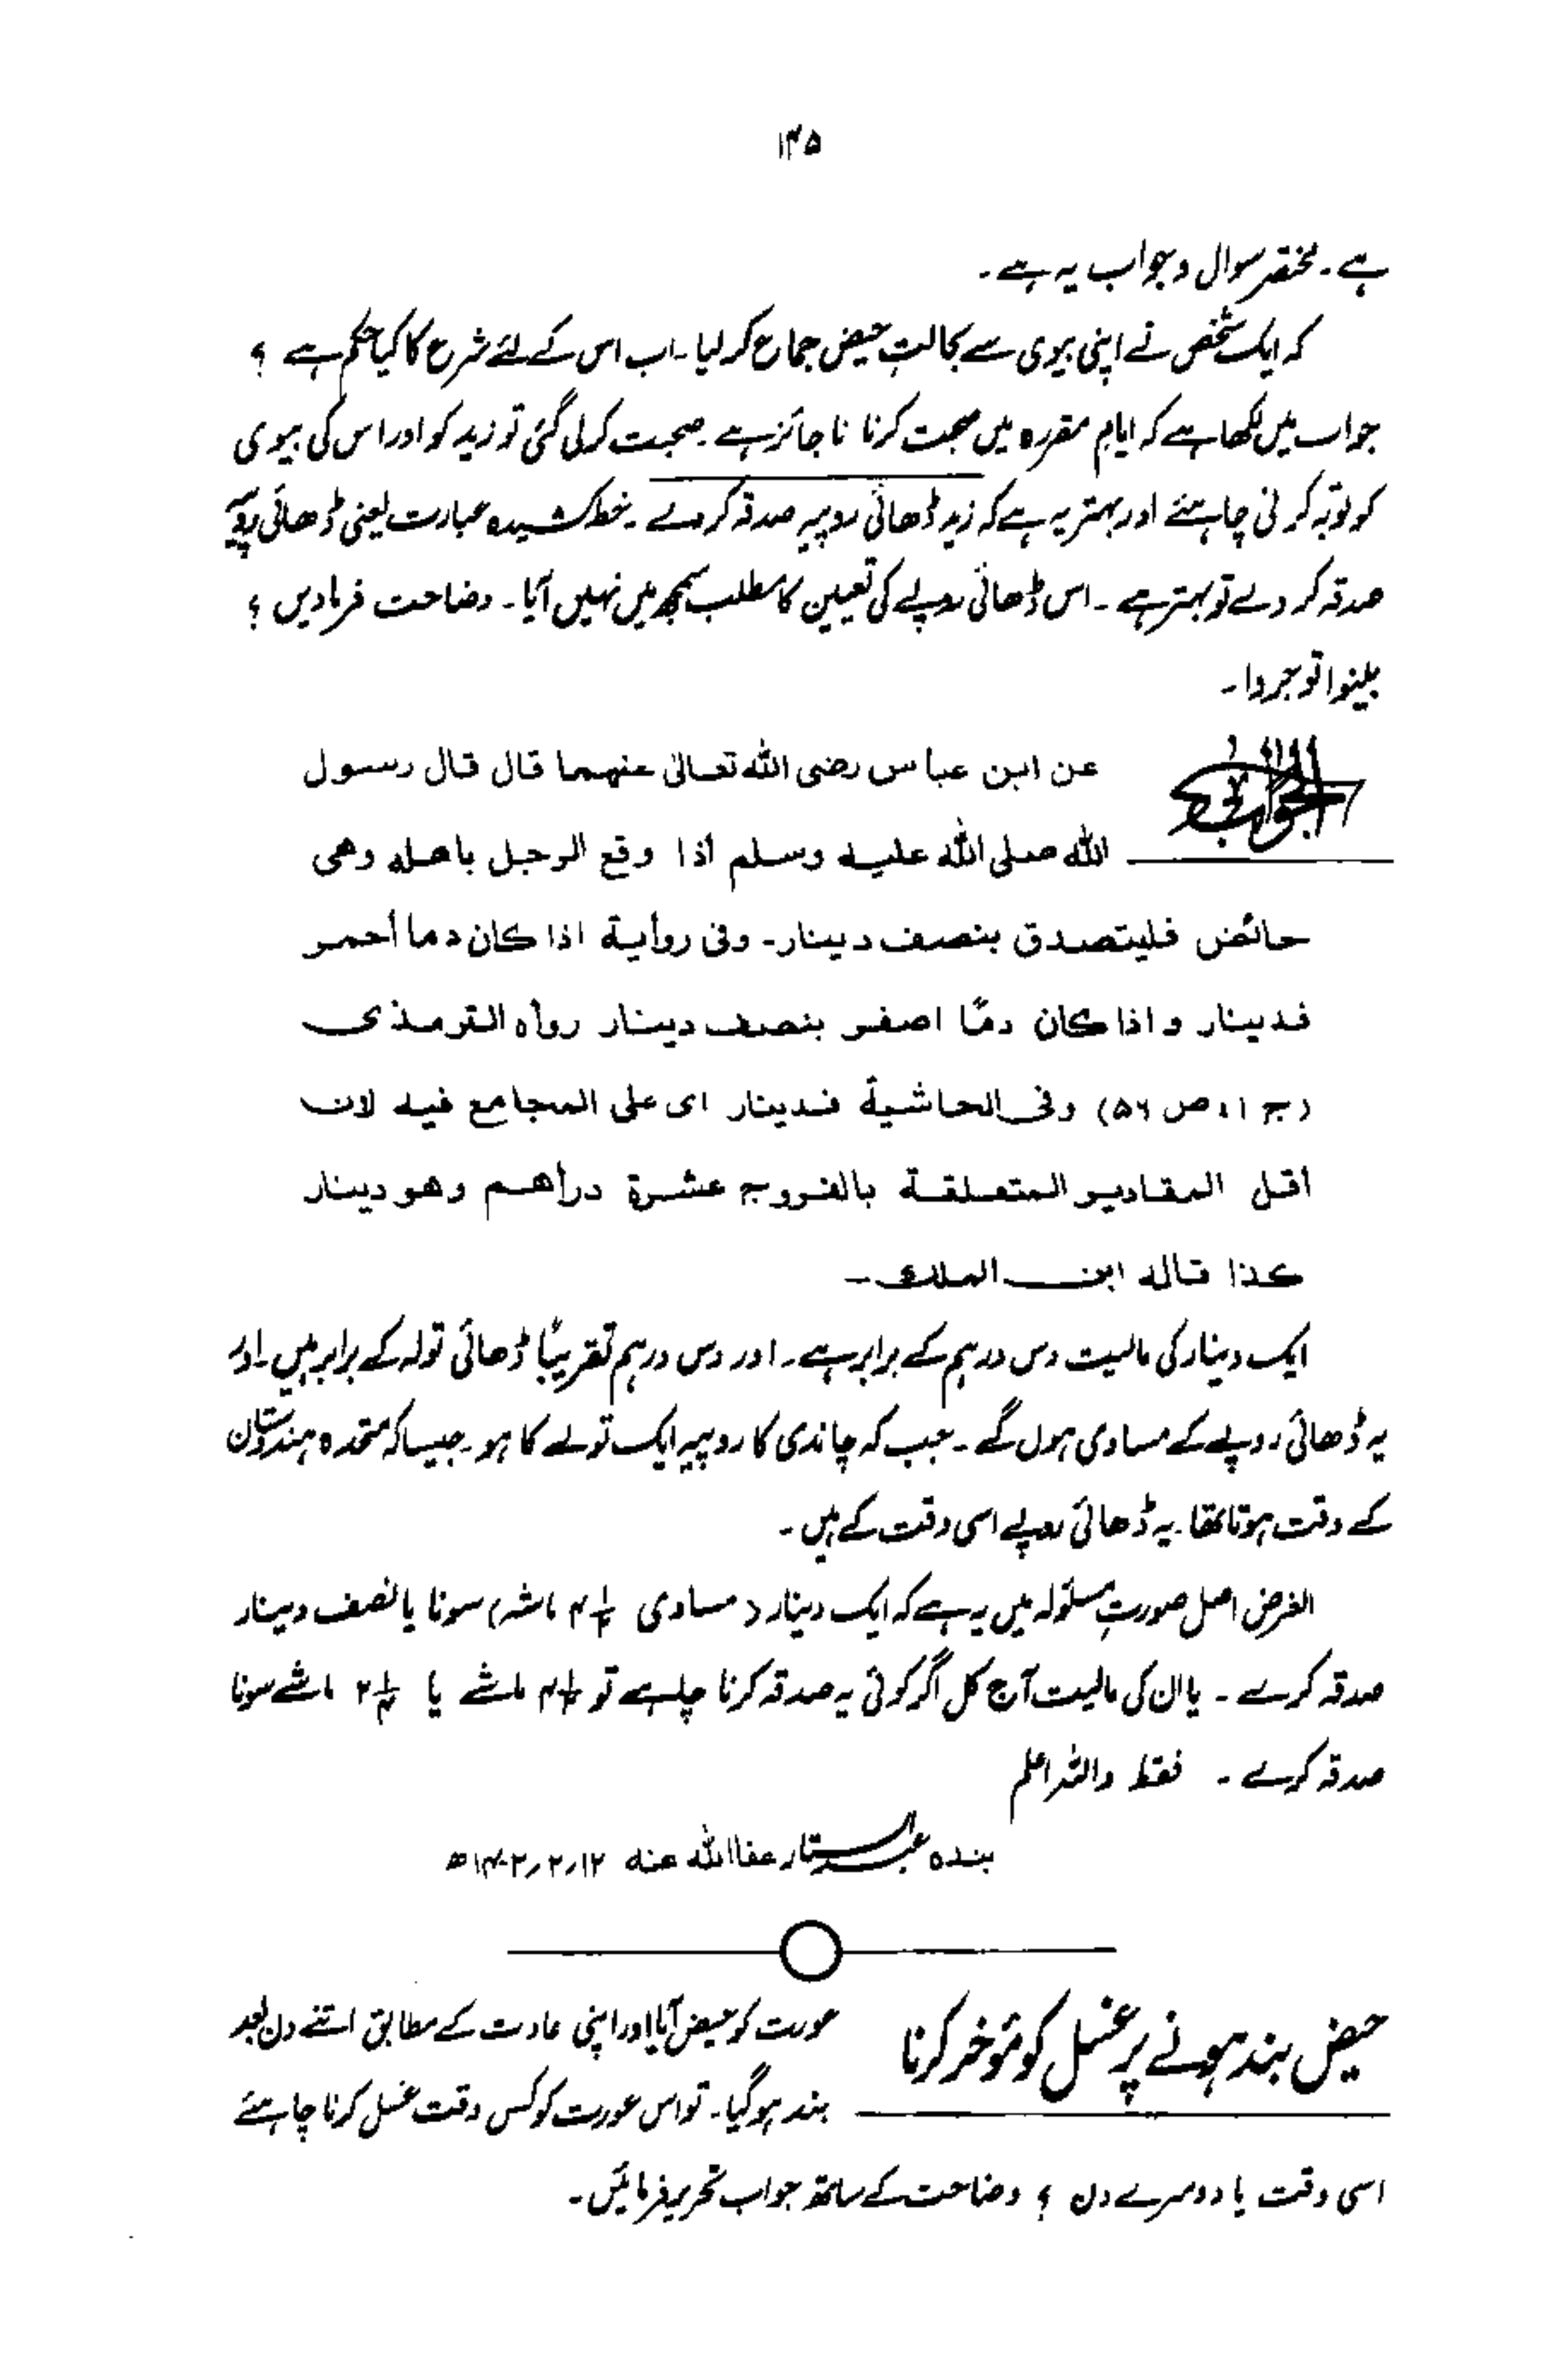 ۱۴۵
ہے۔ مختصر سوال و جواب یہ ہے۔
کہ ایک شخص نے اپنی بیوی سے بحالتِ حیض جماع کر لیا۔ اب اس کے لئے شرع کا کیا حکم ہے ؟
جواب میں لکھا ہے کہ ایامِ مقررہ میں صحبت کرنا ناجائز ہے۔ صحبت کر لی گئی تو زید کو اور اس کی بیوی
کو توبہ کرنی چاہئے اور بہتر یہ ہے کہ زید ڈھائی روپیہ صدقہ کر دے۔ خط کشیدہ عبارت یعنی ڈھائی روپیہ
صدقہ کر دے تو بہتر ہے۔ اس ڈھائی روپے کی تعیین کا مطلب سمجھ میں نہیں آیا۔ وضاحت فرمادیں ؟
بینوا توجروا۔
الجواب عن ابن عباس رضی اللہ تعالیٰ عنہما قال قال رسول
اللہ صلی اللہ علیہ وسلم اذا وقع الرجل باھلہ وھی
حائض فلیتصدق بنصف دینار۔ وفی روأیة اذا کان دما أحمر
فدینار واذا کان دمًا اصفر بنصف دینار روأہ الترمذی
(ج ۱، ص ۵۶) وفی الحاشیة فدینار ای علی المجامع فیہ لان
اقل المقادیر المتعلقة بالفروج عشرة درأھم وھو دینار
کذا قالہ ابن الملک۔
ایک دینار کی مالیت دس درہم کے برابر ہے۔ اور دس درہم تقریبًا ڈھائی تولہ کے برابر ہیں۔ اور
یہ ڈھائی روپے کے مساوی ہوں گے۔ جب کہ چاندی کا روپیہ ایک تولے کا ہو۔ جیسا کہ متحدہ ہندوستان
کے وقت ہوتا تھا۔ یہ ڈھائی روپے اسی وقت کے ہیں۔
الغرض اصل صورتِ مسئولہ میں یہ ہے کہ ایک دینار (مساوی ۴ ۱/۲ ماشہ) سونا یا نصف دینار
صدقہ کرے۔ یا ان کی مالیت آج کل اگر کوئی یہ صدقہ کرنا چاہے تو ۴ ۱/۲ ماشے یا ۲ ۱/۴ ماشے سونا
صدقہ کرے۔ فقط واللہ اعلم
بندہ عبدالستار عفا اللہ عنہ ۱۲؍۲؍۱۴۰۲ھ
حیض بند ہونے پر غسل کو مؤخر کرنا عورت کو حیض آیا اور اپنی عادت کے مطابق اتنے دن بعد
بند ہوگیا۔ تو اس عورت کو کس وقت غسل کرنا چاہئے
اسی وقت یا دوسرے دن ؟ وضاحت کے ساتھ جواب تحریر فرمائیں۔